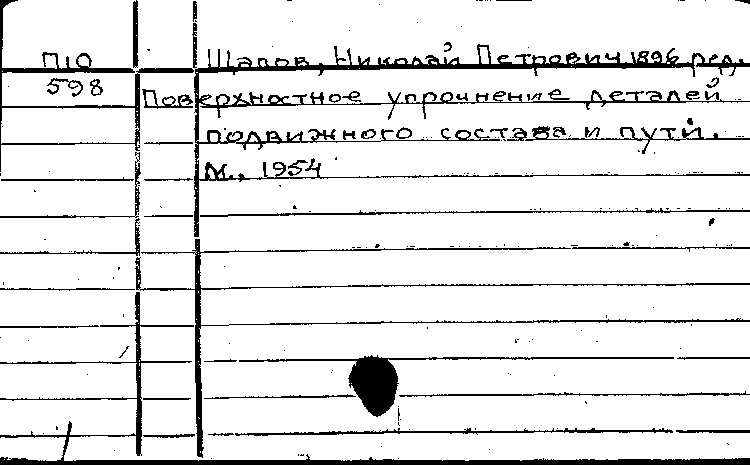 П10
598
Щапов, Николай Петрович 1896 ред.
Поверхностное упрочнение деталей
подвижного состава и пути.
М., 1954